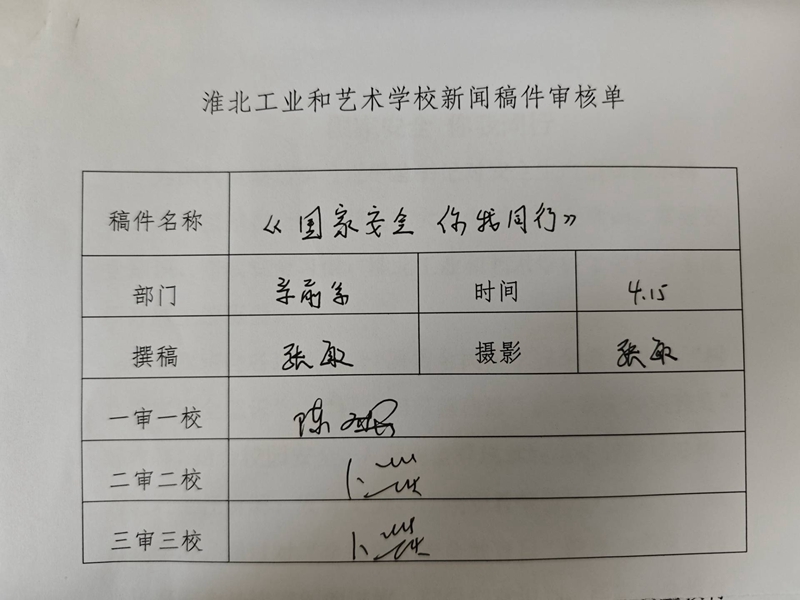 淮北工业和艺术学校新闻稿件审核单
稿件名称 《国家安全 你我同行》
部门 学前系 时间 4.15
撰稿 张敏 摄影 张敏
一审一校 陈
二审二校
三审三校